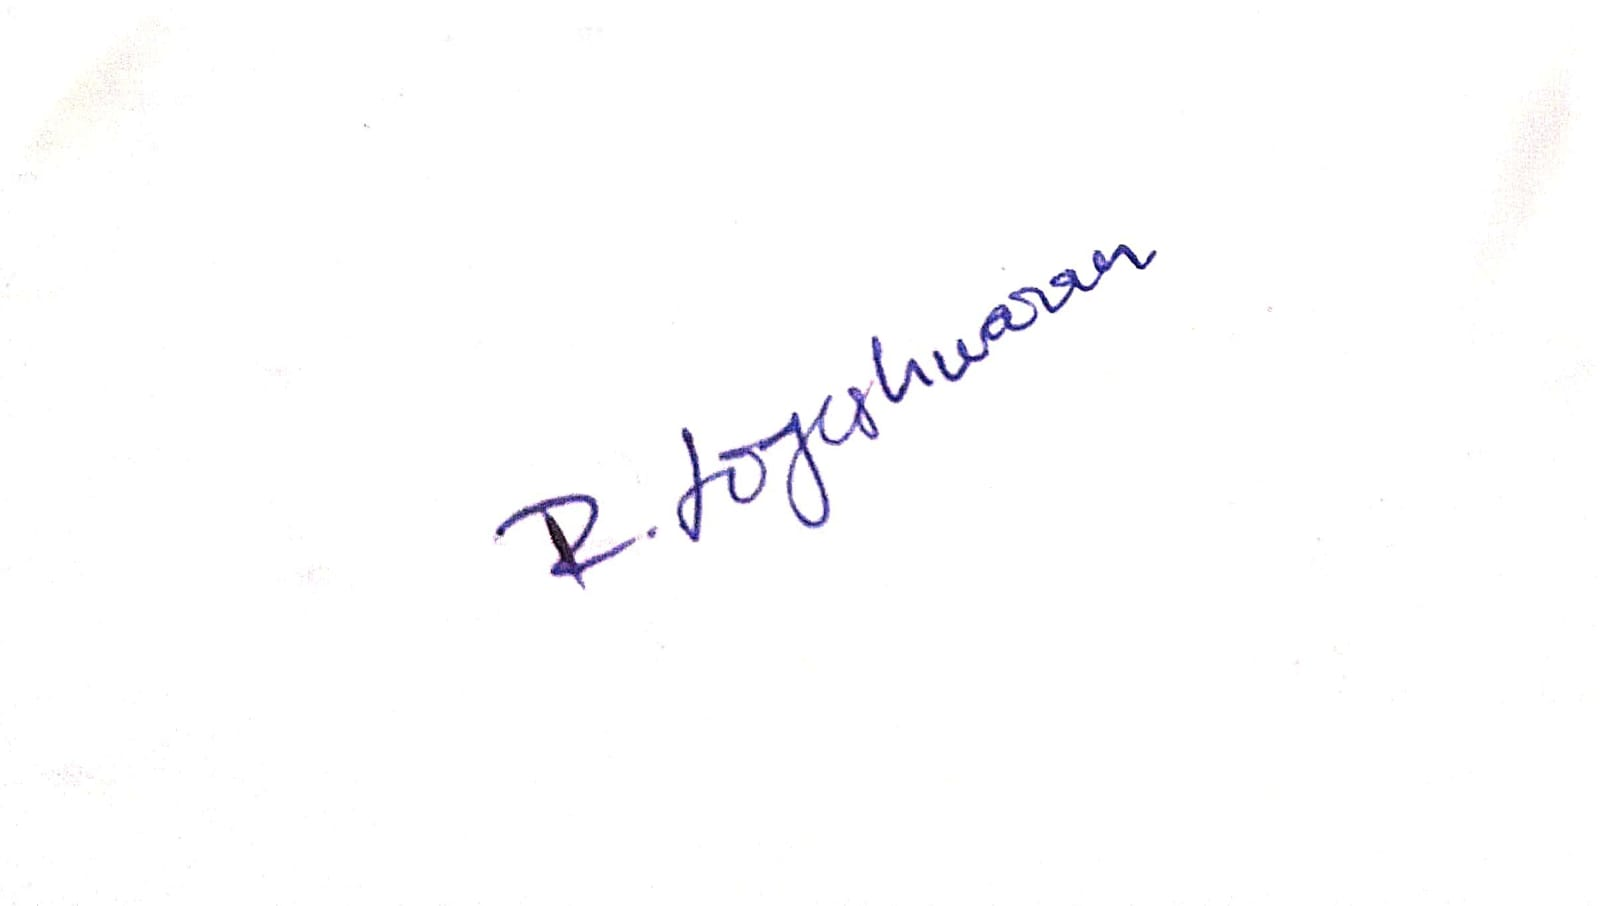 R. Logeshwaran